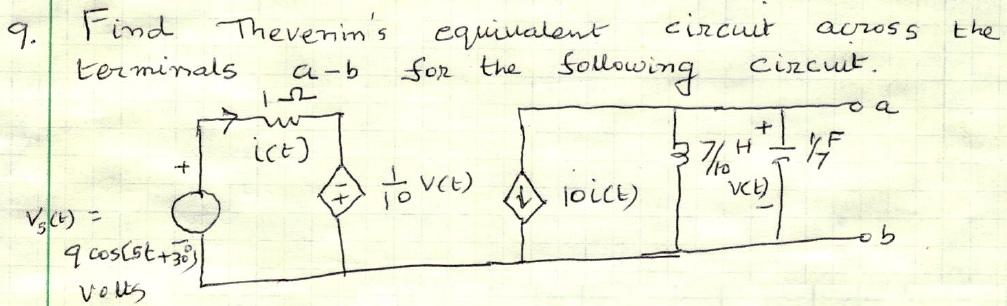 9. Find Thevenin's equivalent circuit across the
terminals a-b for the following circuit.
1 Ω
a
i(t)
+
- +
1/10 v(t)
10 i(t)
7/10 H
+
1/7 F
v(t)
-
Vs(t) =
9 cos(5t+30°)
volts
b